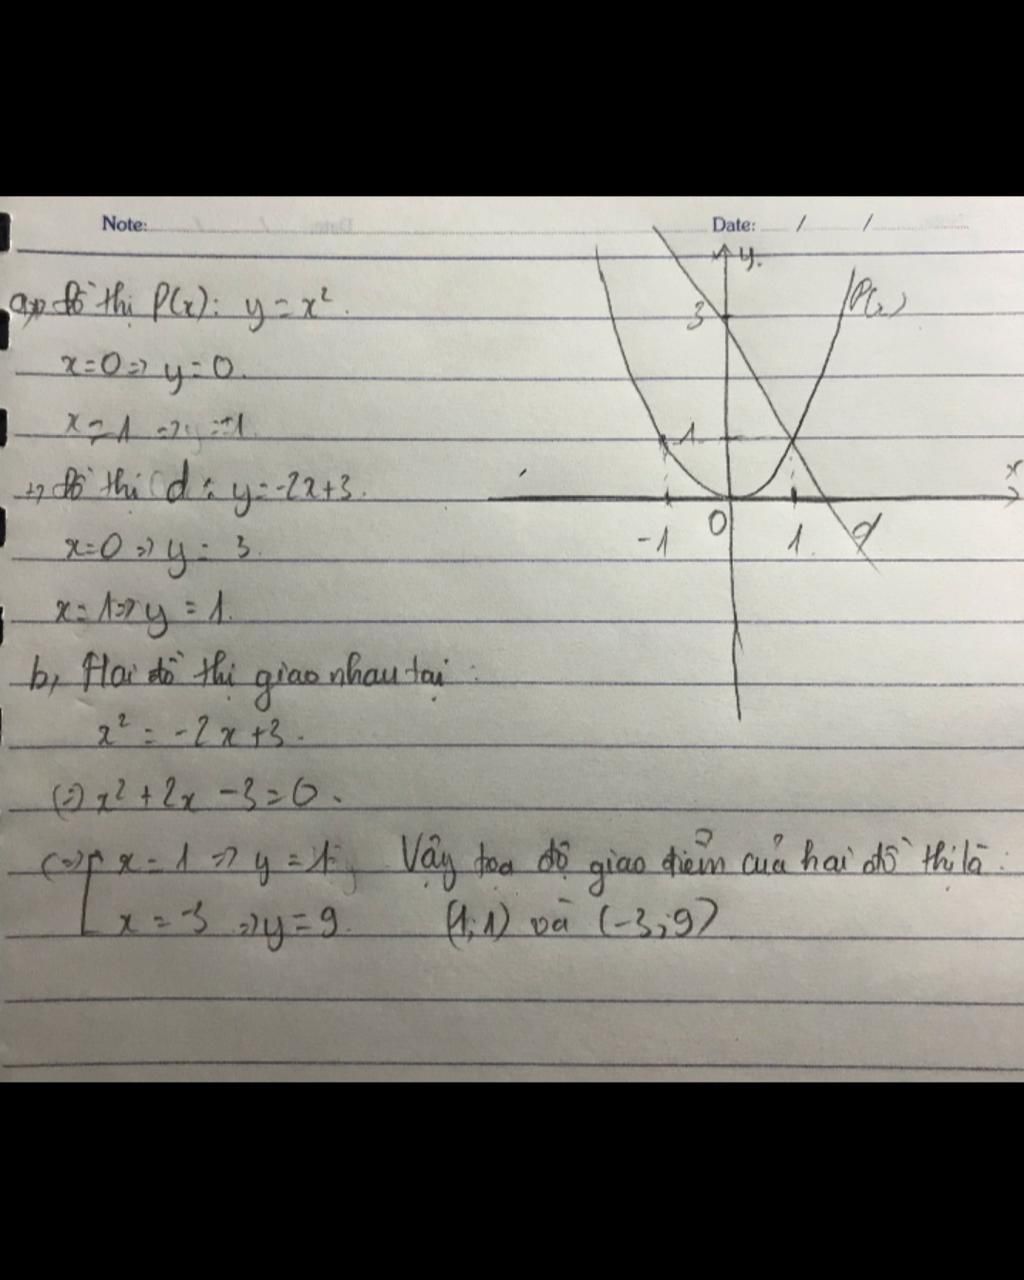 Note: Date: / /
a, +) đồ thị P(x): y = x²
x=0 => y=0.
x=1 => y=1
+) đồ thị d: y=-2x+3.
x=0 => y= 3.
x=1 => y=1.
b, Hai đồ thị giao nhau tại :
x² = -2x+3.
(=) x²+2x -3=0.
(=) [ x=1 => y=1
x=-3 => y=9.
Vậy tọa độ giao điểm của hai đồ thị là :
(1;1) và (-3;9)
y.
3
P(x)
1
x
0
-1
1.
d